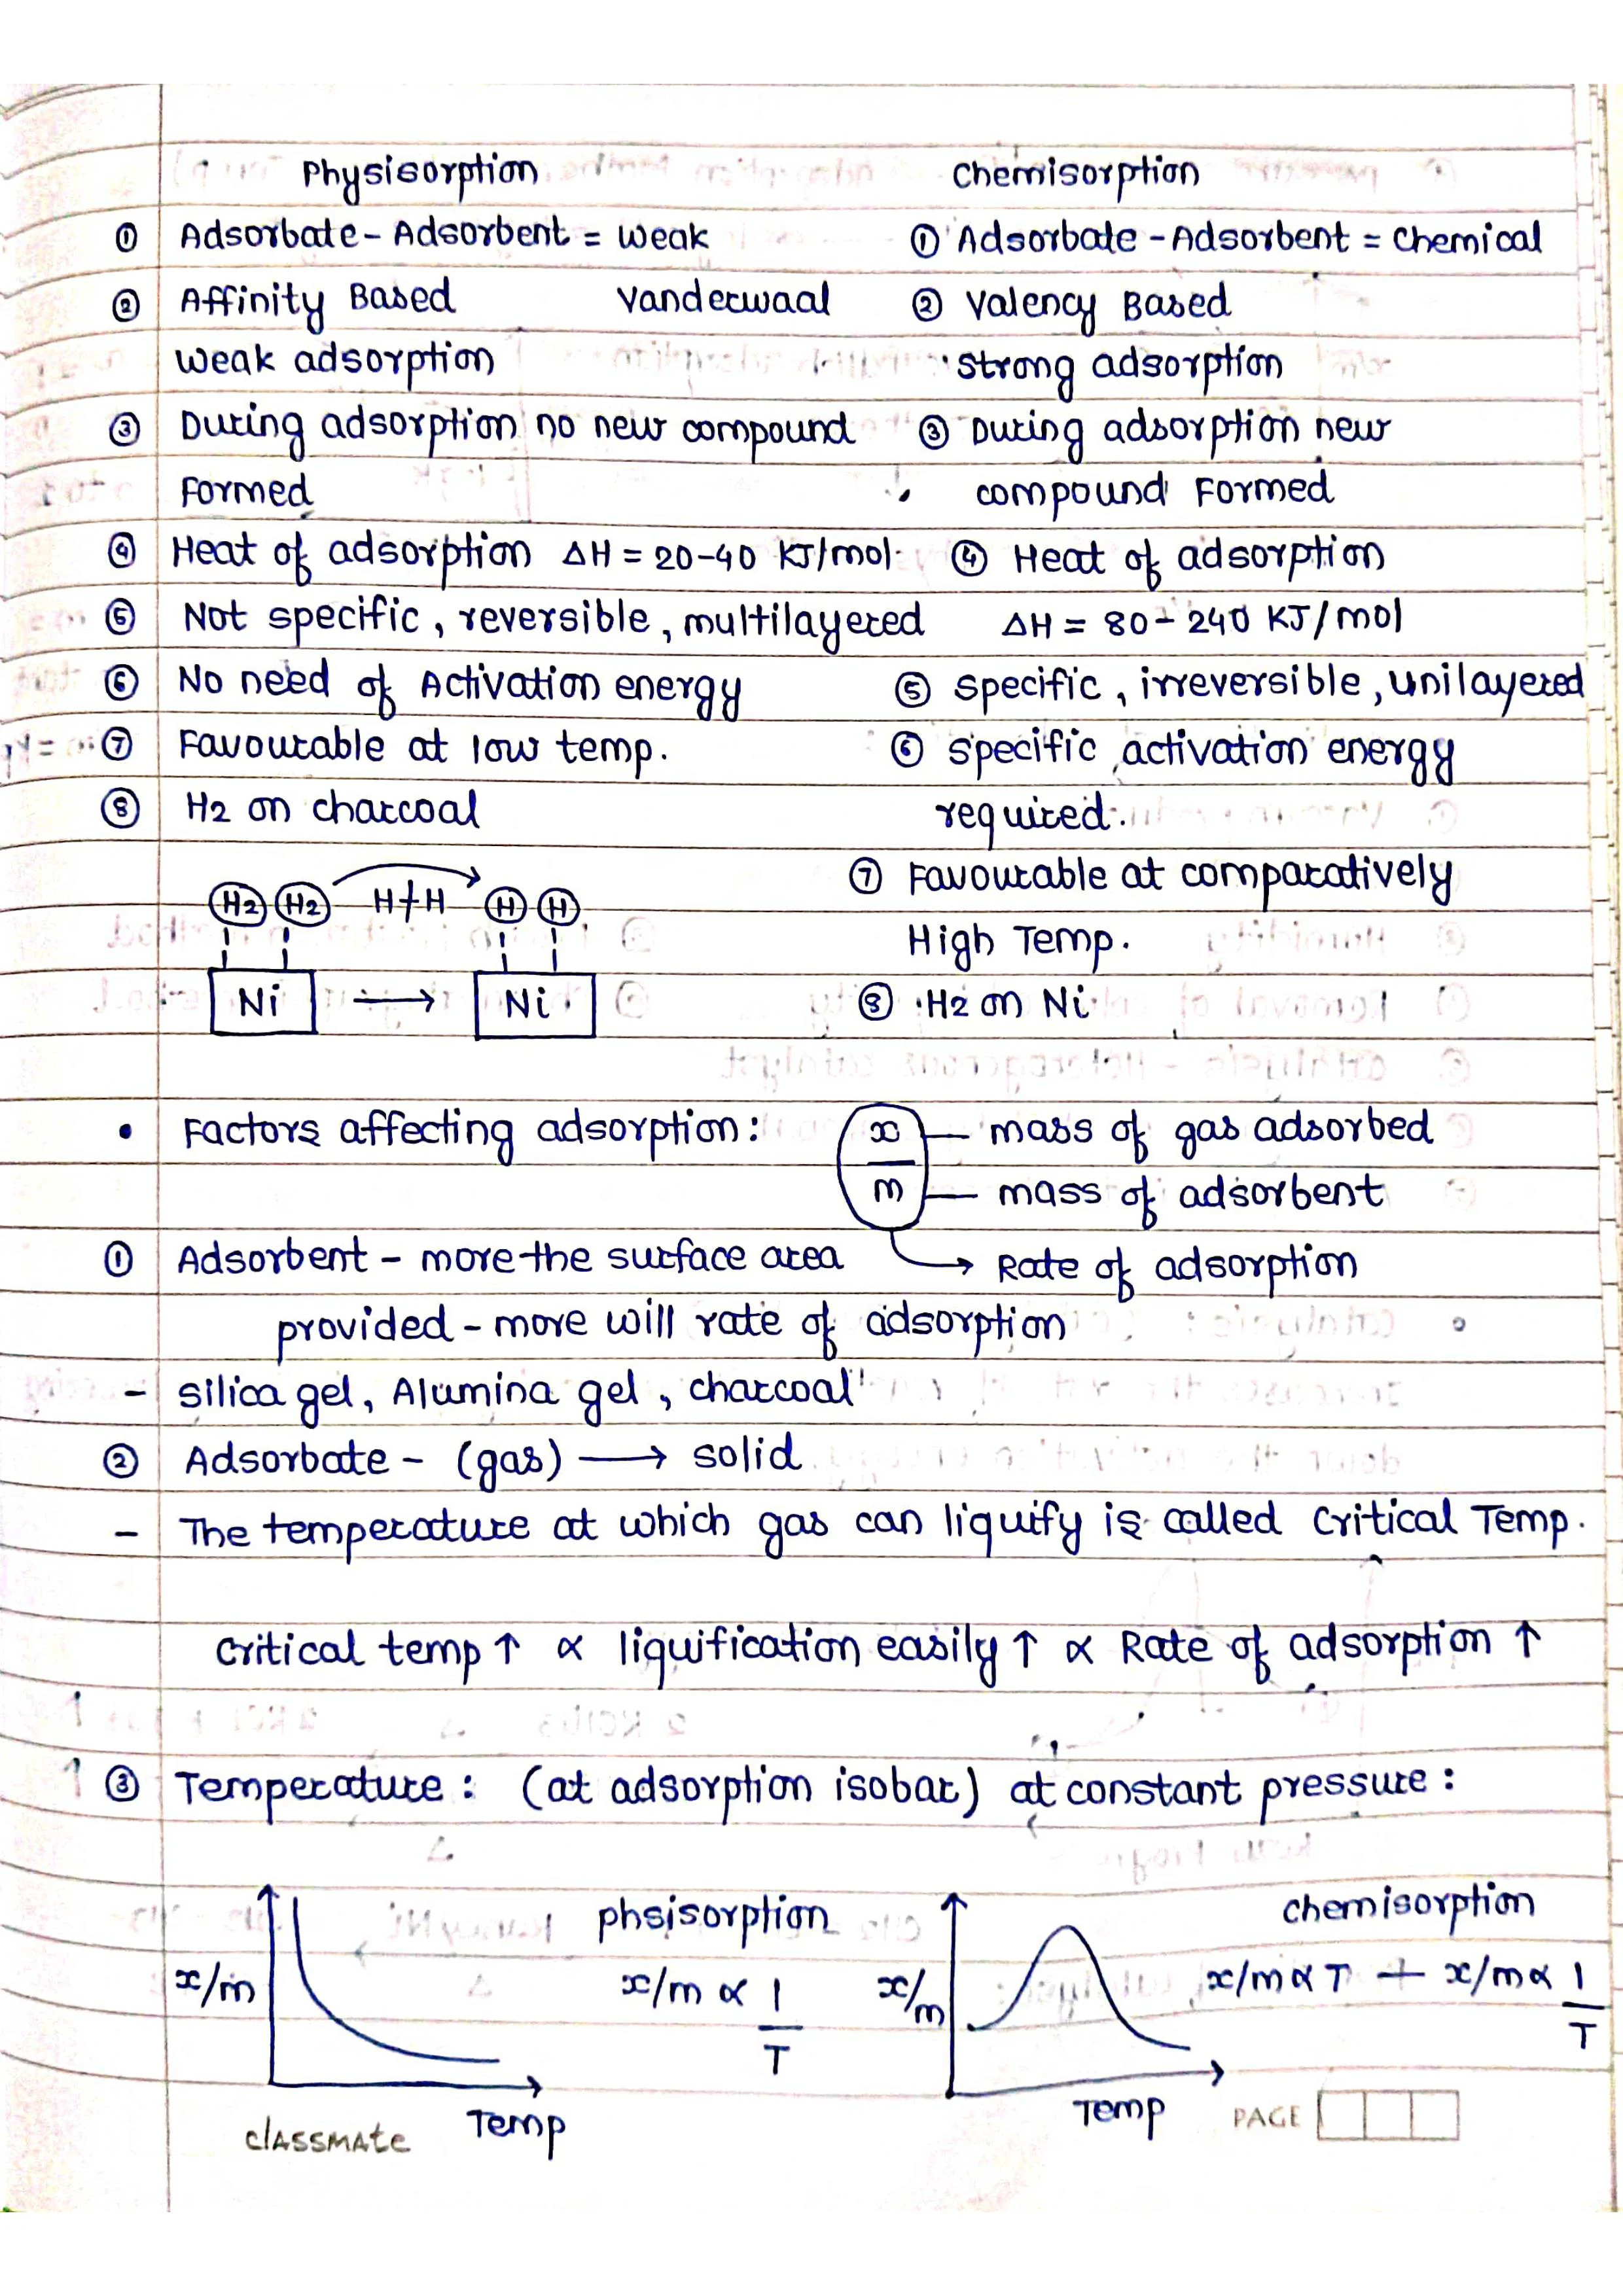 Physisorption    Chemisorption
① Adsorbate - Adsorbent = weak    ① Adsorbate - Adsorbent = chemical
② Affinity Based    Vanderwaal    ② Valency Based
weak adsorption    strong adsorption
③ During adsorption no new compound    ③ During adsorption new
formed    compound formed
④ Heat of adsorption ΔH = 20-40 KJ/mol    ④ Heat of adsorption
⑤ Not specific, reversible, multilayered    ΔH = 80-240 KJ/mol
⑥ No need of Activation energy    ⑤ specific, irreversible, unilayered
⑦ Favourable at low temp.    ⑥ specific activation energy
⑧ H2 on charcoal    required.
⑦ Favourable at comparatively
H2 H2 H+H H H
High Temp.
Ni → Ni    ⑧ H2 on Ni
• Factors affecting adsorption:    x — mass of gas adsorbed
m — mass of adsorbent
① Adsorbent - more the surface area → Rate of adsorption
provided - more will rate of adsorption
- silica gel, Alumina gel, charcoal
② Adsorbate - (gas) → solid
- The temperature at which gas can liquify is called Critical Temp.
Critical temp ↑ ∝ liquification easily ↑ ∝ Rate of adsorption ↑
③ Temperature: (at adsorption isobar) at constant pressure:
phsisorption    chemisorption
x/m    x/m ∝ 1/T    x/m    x/m ∝ T + x/m ∝ 1/T
Temp    Temp
classmate    PAGE